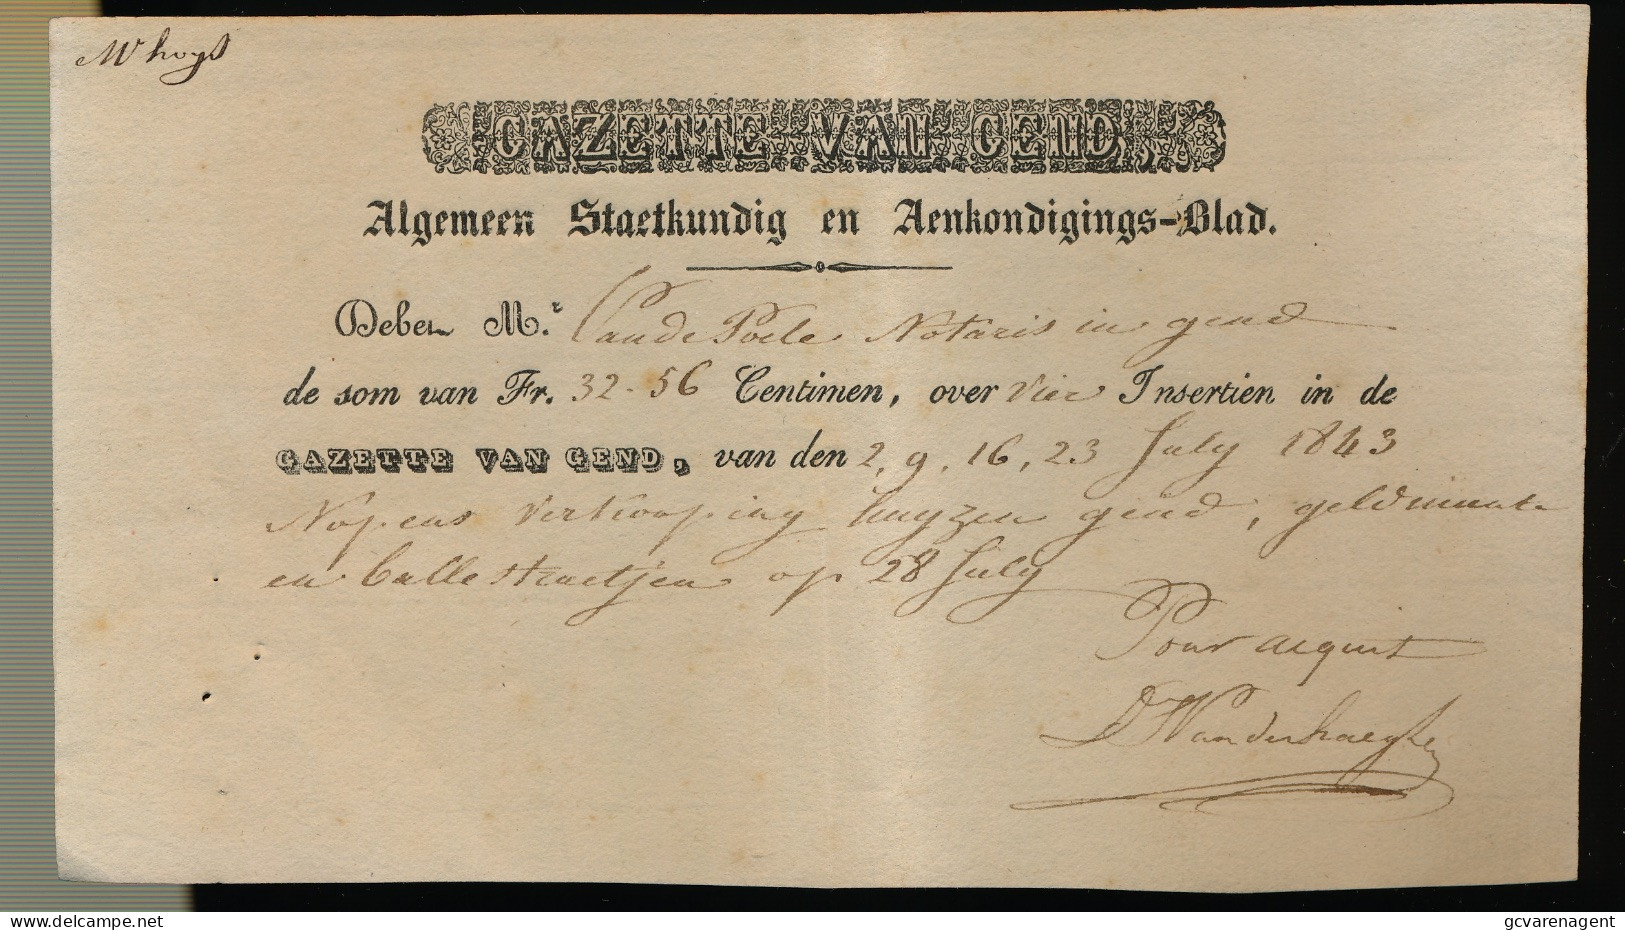 GAZETTE VAN GEND,
Algemeen Staetkundig en Aenkondigings-Blad.
Debet M.r Van de Poele Notaris in gend
de som van Fr. 32-56 Centimen, over vier Insertien in de
GAZETTE VAN GEND, van den 2, 9, 16, 23 July 1843
Nopens verkooping huyzen gend, geldmunt
en ballestraetjen op 28 July
Pour acquit
D Vanderhaeghen
www.delcampe.net
gcvarenagent